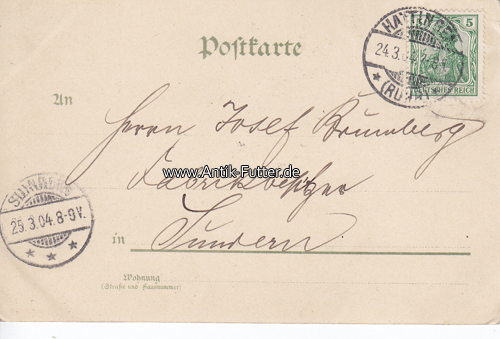 Postkarte
HATTINGEN
24.3.04.
(RUHR)
5
DEUTSCHES REICH
An
Herrn Josef Brumberg
www.Antik-Futter.de
Fabrikbesitzer
SUNDERN
25.3.04.8-9V.
in Sundern
Wohnung
(Straße und Hausnummer)